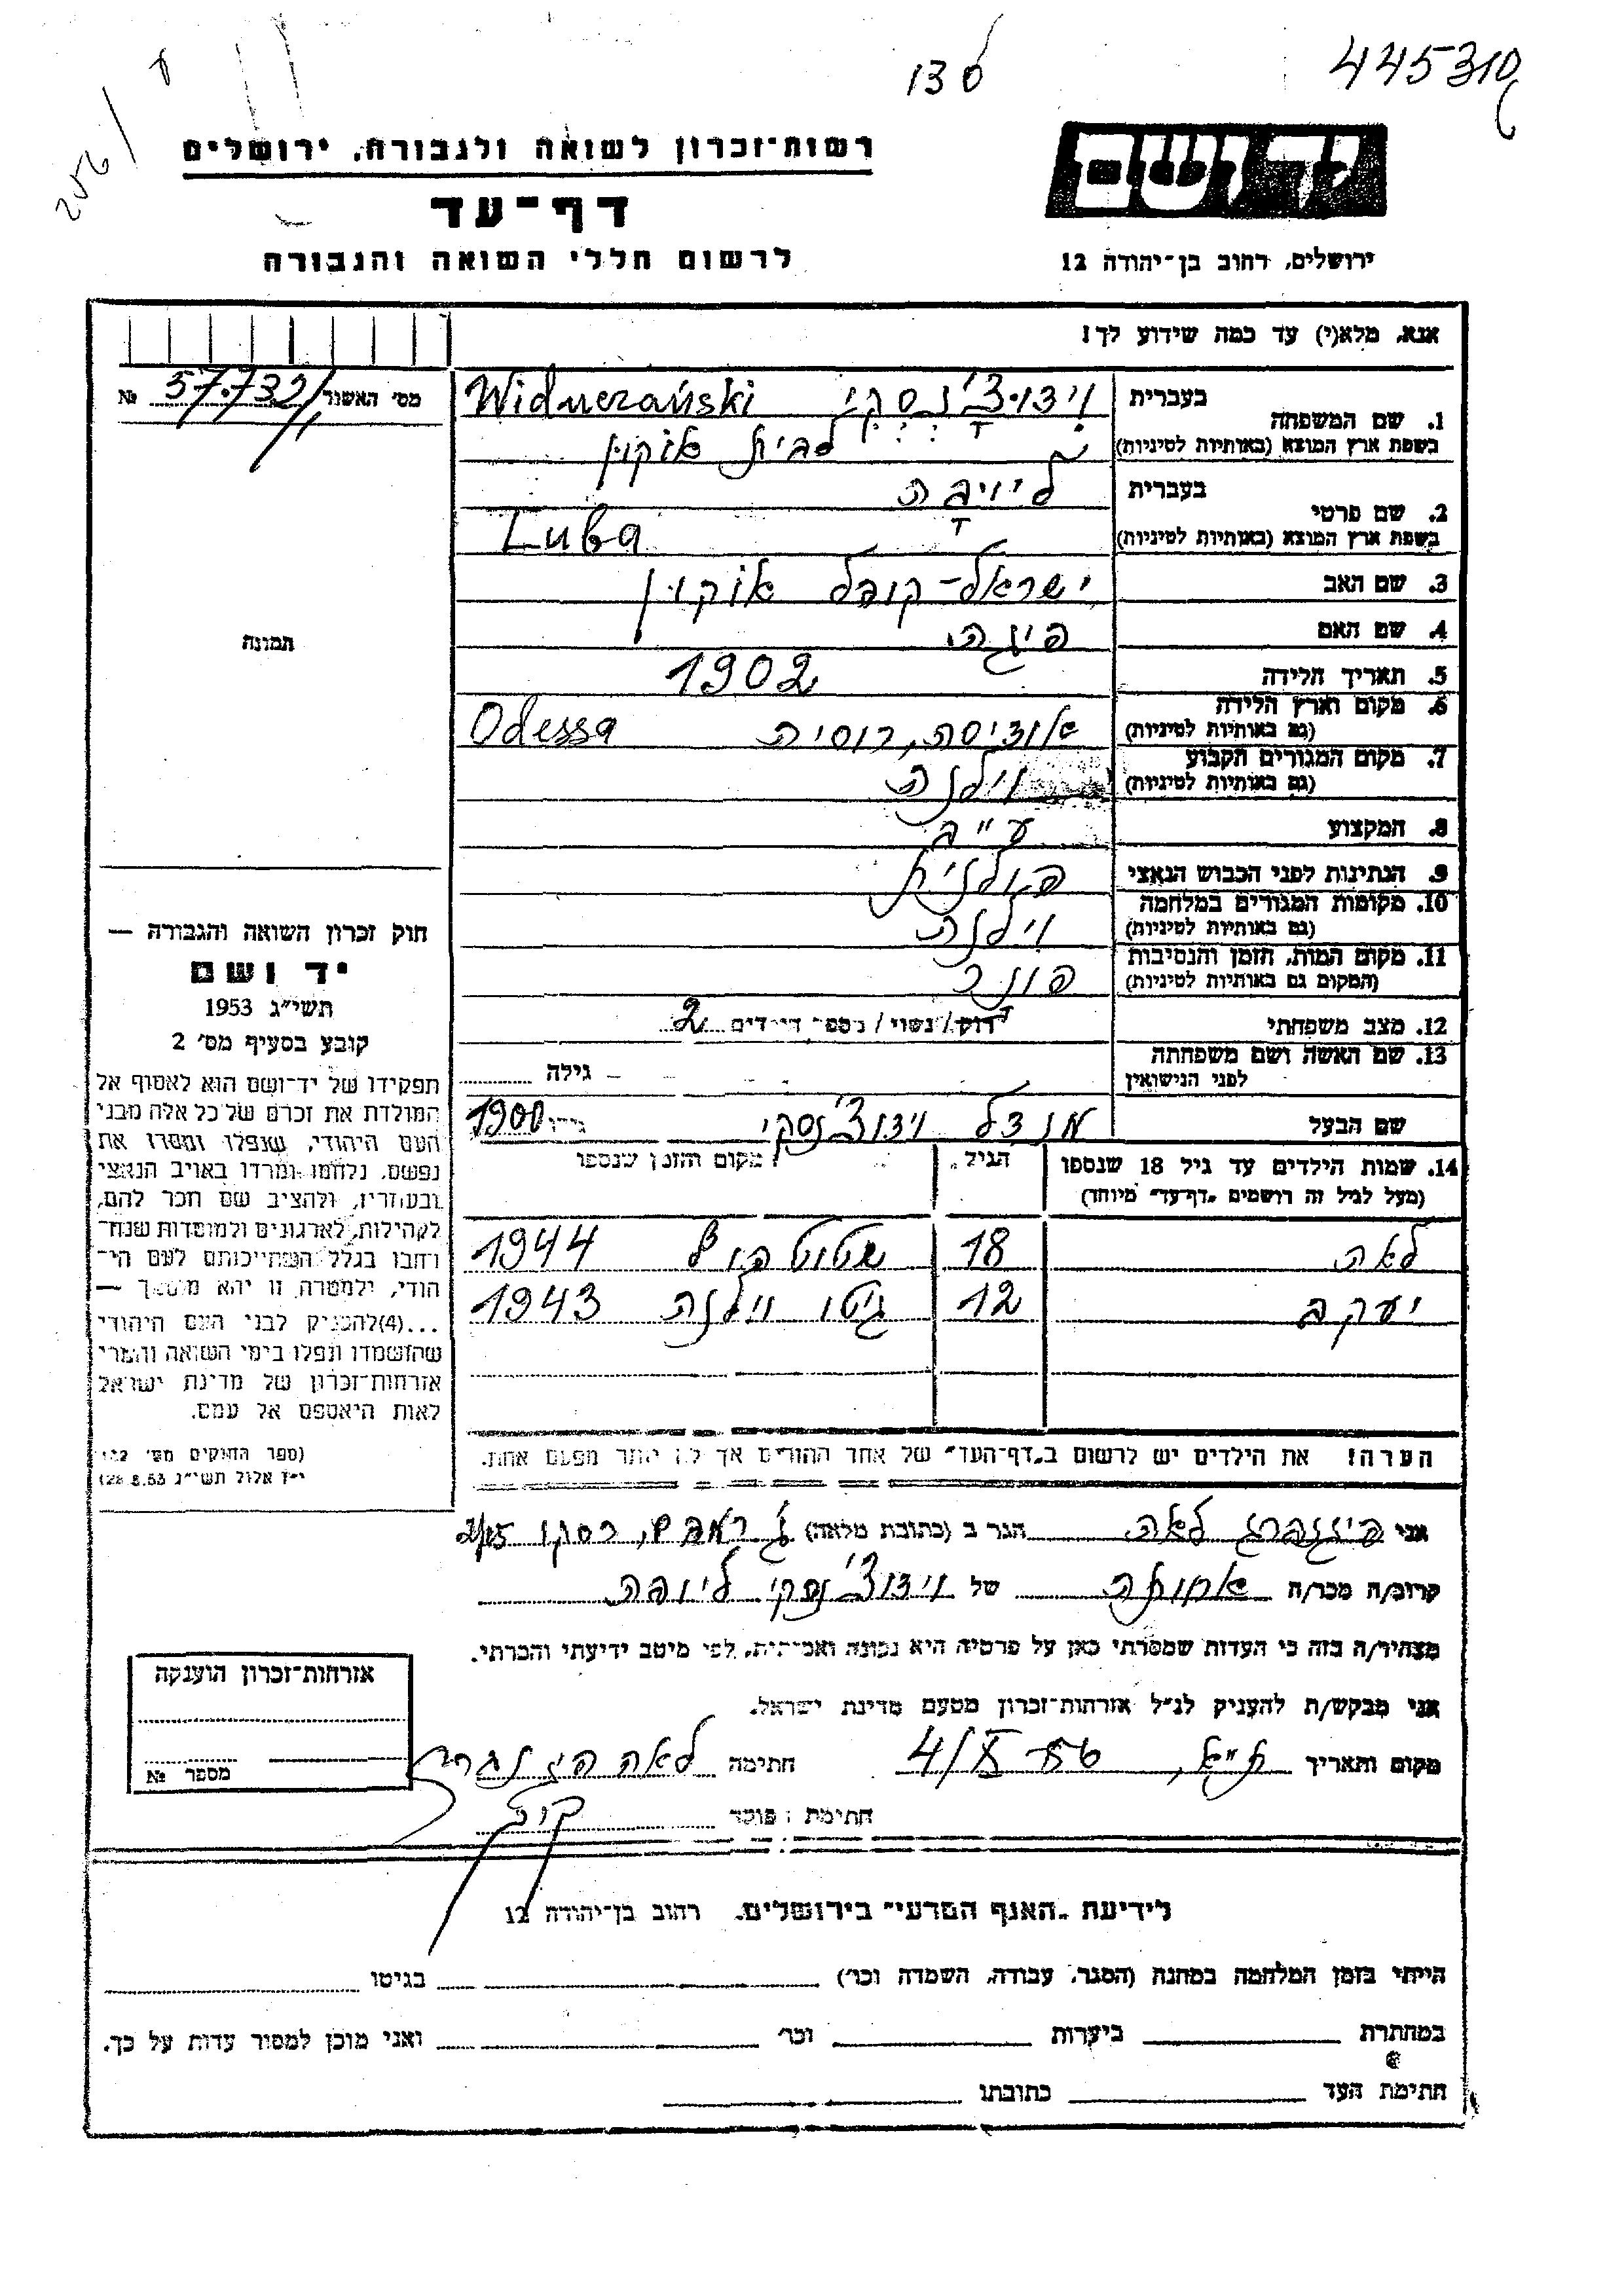 445310
130
יד ושם
ירושלים, רחוב בן־יהודה 12
רשות־זכרון לשואה ולגבורה, ירושלים
דף־עד
לרשום חללי השואה והגבורה
אנא, מלא(י) עד כמה שידוע לך!
מס׳ האשור 57.732 №
1. שם המשפחה
בעברית
בשפת ארץ המוצא (באותיות לטיניות)
Widuczański
לבית אוקון
2. שם פרטי
בעברית ליובה
בשפת ארץ המוצא (באותיות לטיניות) Luba
3. שם האב ישראל-קופל אוקון
4. שם האם פיגה
5. תאריך הלידה 1902
6. מקום וארץ הלידה
(גם באותיות לטיניות) אודיסה, רוסיה Odessa
7. מקום המגורים הקבוע
(גם באותיות לטיניות) וילנה
8. המקצוע ע״ב
9. הנתינות לפני הכבוש הנאצי פולנית
10. מקומות המגורים במלחמה
(גם באותיות לטיניות) וילנה
11. מקום המות, הזמן והנסיבות
(המקום גם באותיות לטיניות) פונר
12. מצב משפחתי רוק/נשוי/מספר הילדים 2
13. שם האשה ושם משפחתה
לפני הנישואין גילה
שם הבעל מנדל וידוצ׳נסקי גילו 1900
14. שמות הילדים עד גיל 18 שנספו הגיל מקום והזמן שנספו
(מעל לגיל זה רושמים „דף־עד״ מיוחד)
לאה 18 שטוטהוף 1944
יעקב 12 גיטו וילנה 1943
הערה! את הילדים יש לרשום ב„דף־העד״ של אחד ההורים אך לא יותר מפעם אחת.
תמונה
חוק זכרון השואה והגבורה —
יד ושם
תשי״ג 1953
קובע בסעיף מס׳ 2
תפקידו של יד־ושם הוא לאסוף אל
המולדת את זכרם של כל אלה מבני
העם היהודי, שנפלו ומסרו את
נפשם, נלחמו ומרדו באויב הנאצי
ובעוזריו, ולהציב שם וזכר להם,
לקהילות, לארגונים ולמוסדות שנח־
רבו בגלל השתייכותם לעם הי־
הודי, ולמטרה זו יהא מוסמך —
...(4)להעניק לבני העם היהודי
שהושמדו ונפלו בימי השואה והמרי
אזרחות־זכרון של מדינת ישראל
לאות היאספם אל עמם.
(ספר החוקים מס׳ 132
י״ז אלול תשי״ג 28.8.53)
אני פיגנברג לאה הגר ב (כתובת מלאה)
קרוב/ה מכר/ה אחותה של וידוצ׳נסקי ליובה
מצהיר/ה בזה כי העדות שמסרתי כאן על פרטיה היא נכונה ואמיתית, לפי מיטב ידיעתי והכרתי.
אני מבקש/ת להעניק לנ״ל אזרחות־זכרון מטעם מדינת ישראל.
מקום ותאריך ת״א, 4/X חתימה לאה
חתימת הפוקד
אזרחות־זכרון הוענקה
מספר №
לידיעת „האגף המדעי״ בירושלים, רחוב בן־יהודה 12
הייתי בזמן המלחמה במחנה (הסגר, עבודה, השמדה וכו׳) בגיטו
במחתרת ביערות וכו׳ ואני מוכן למסור עדות על כך.
חתימת העד כתובתו